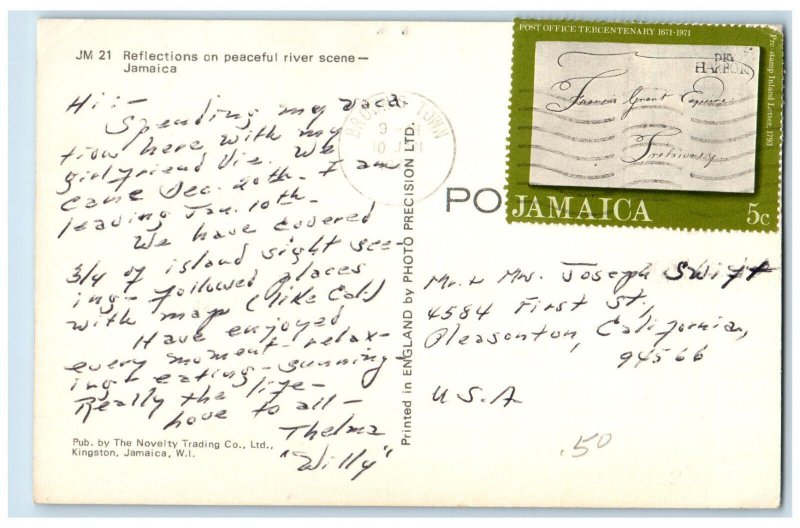 JM 21 Reflections on peaceful river scene—
Jamaica
Hi:-
Spending my vaca-
tion here with my
girlfriend Vie. We
came Dec. 20th. I am
leaving Jan. 10th.
We have covered
3/4 of island sight see-
ing - followed places
with map (like Cal.)
Have enjoyed
every moment - relax-
ing eating - sunning -
Really the life -
Love to all -
Thelma
"Willy"
Pub. by The Novelty Trading Co., Ltd.,
Kingston, Jamaica, W.I.
Printed in ENGLAND by PHOTO PRECISION LTD.
TOWN
PO
POST OFFICE TERCENTENARY 1671-1971
Pre-stamp Inland Letter, 1793
DRY
HARBOR
Francis Grant
JAMAICA 5c
Mr. + Mrs. Joseph Swift
4584 First St.,
Pleasanton, California,
94566
U.S.A
.50